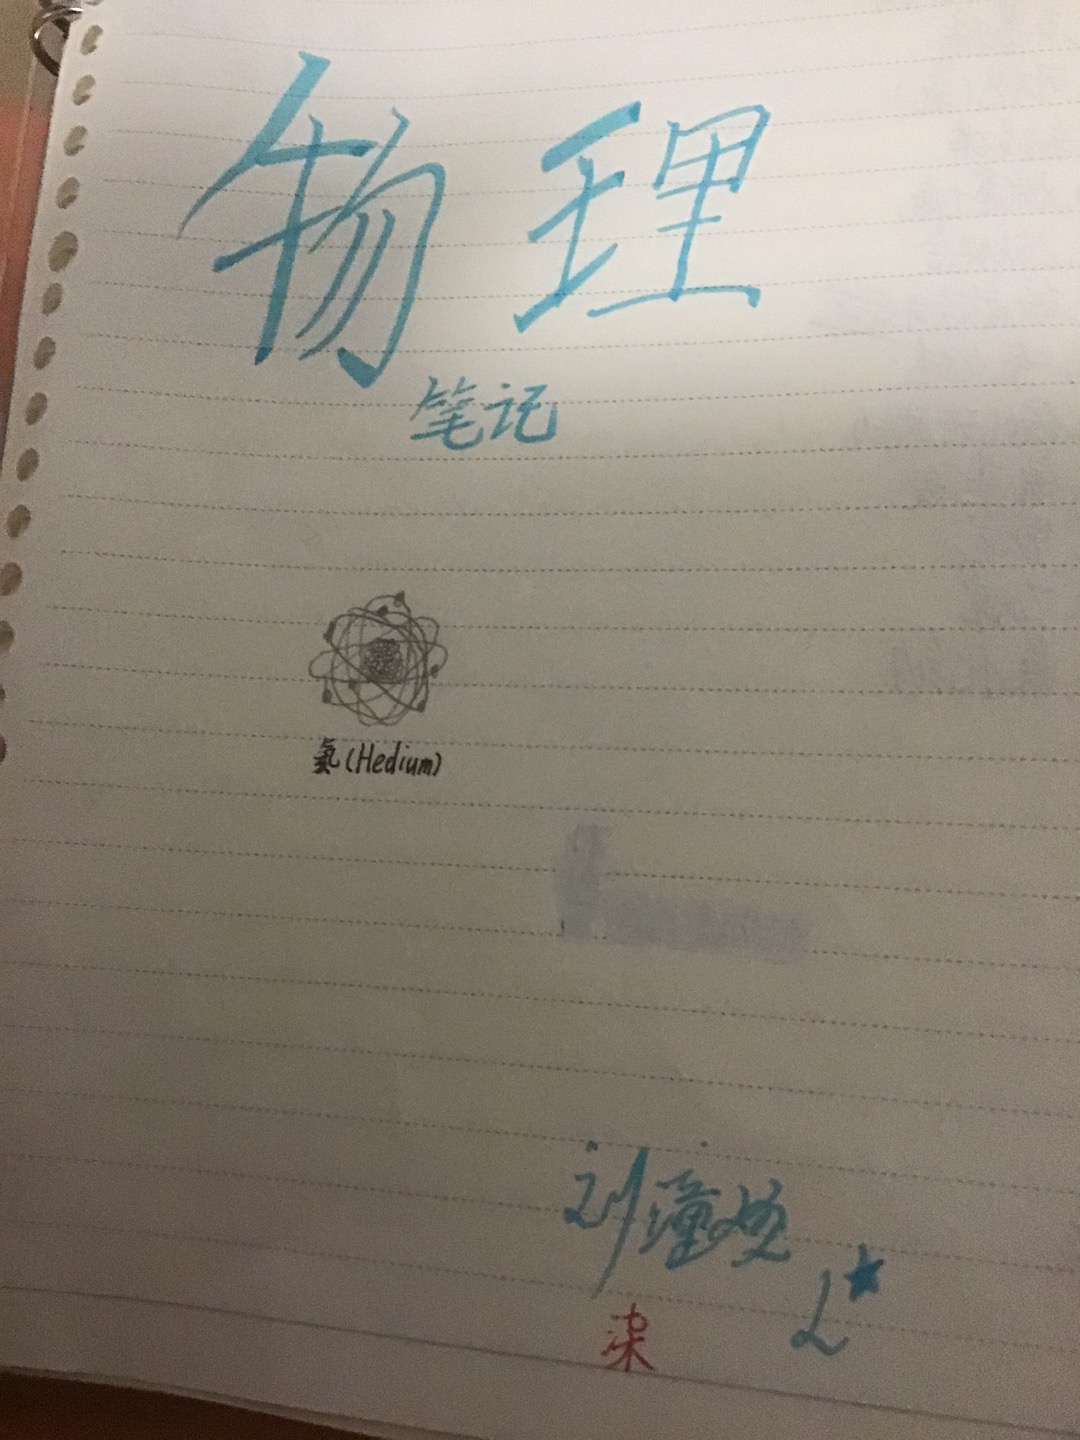 物理
笔记
氦(Hedium)
刘
L
柒